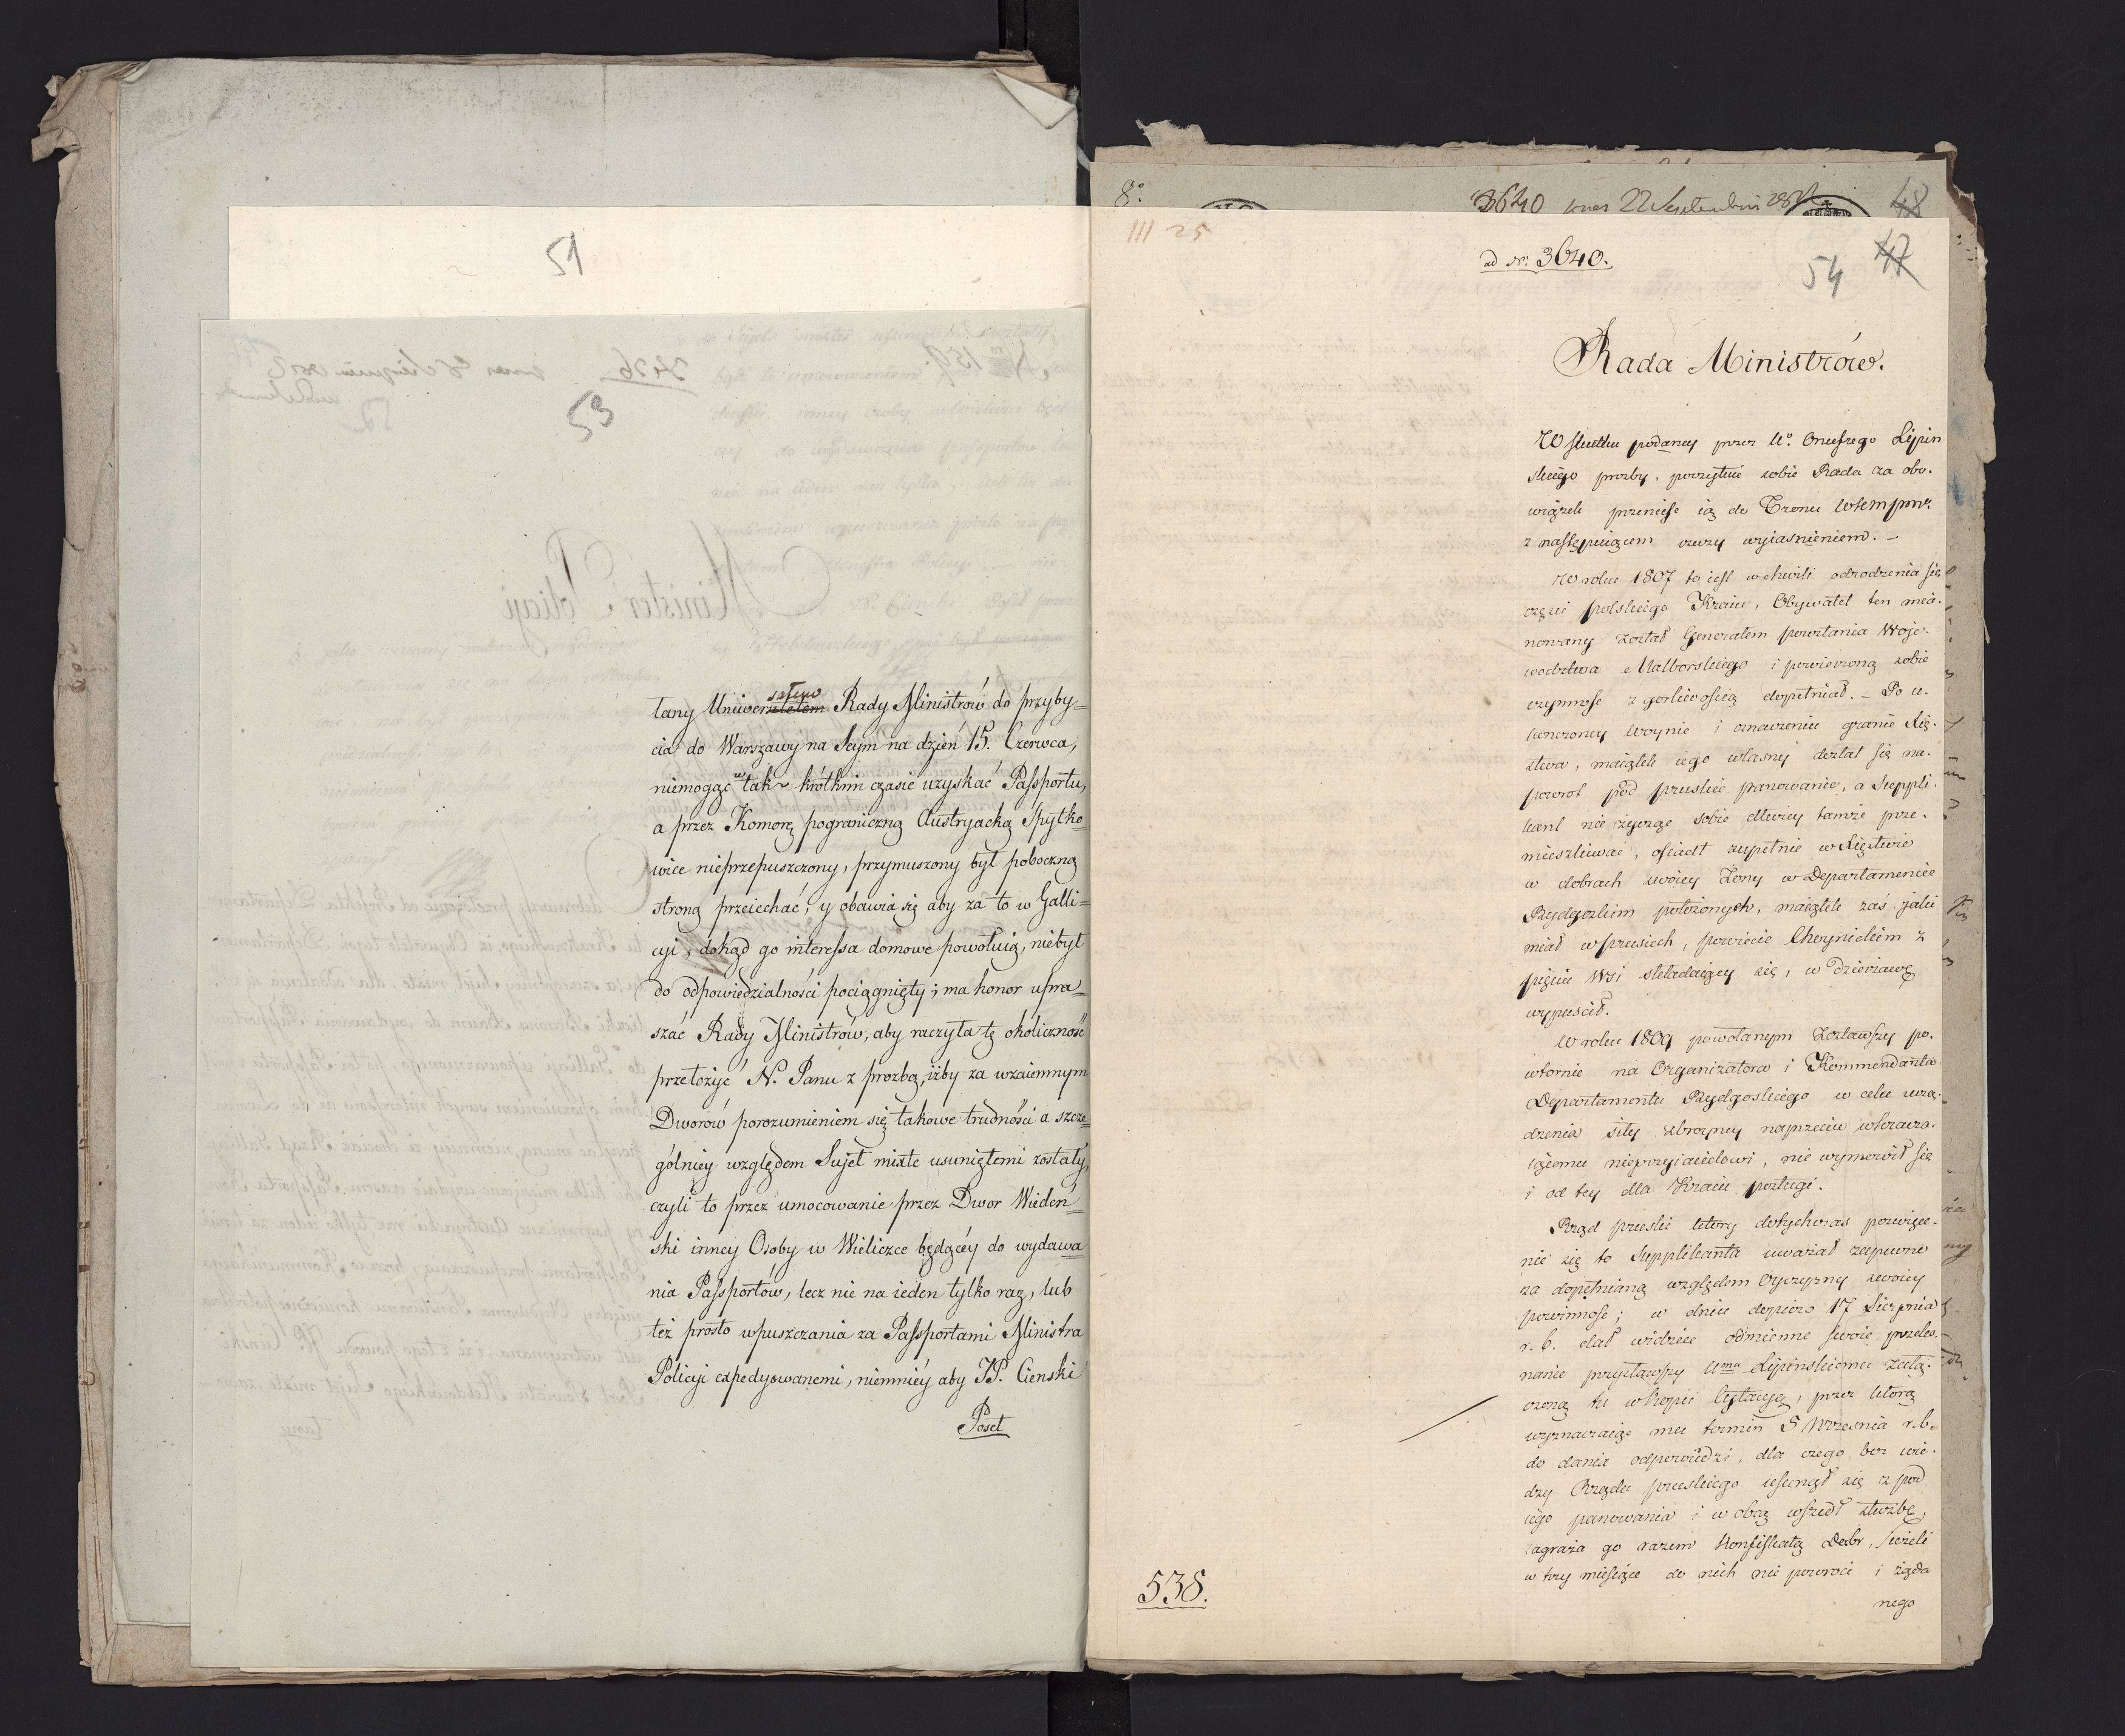 51
53
tany Uniwersałem Rady Ministrów do przyby=
cia do Warszawy na Seym na dzień 15. Czerwca,
niemogąc w tak krótkim czasie uzyskać Passportu,
a przez Komorę pograniczną Austryacką Spytko=
wice nieprzepuszczony, przymuszony był poboczną
stroną przeiechać, y obawia się aby za to w Galli=
cyi, dokąd go interessa domowe powołuią, niebył
do odpowiedzialności pociągnięty; ma honor upra=
szać Rady Ministrów, aby raczyła tę okoliczność
przełożyć N. Panu z prozbą, iżby za wzaiemnym
Dworów porozumieniem się takowe trudności a szcze=
gólniey względem Sujet mixte usuniętemi zostały,
czyli to przez umocowanie przez Dwor Wiedeń=
ski inney Osoby w Wieliczce będącéy do wydawa=
nia Passportów, lecz nie na ieden tylko raz, lub
też prosto wpuszczania za Passportami Ministra
Policyi expedyowanemi, niemniéy aby JP. Cienski
Poseł
8º
3640 22 Septembris
48
III 25
ad Nr. 3640.
54
47
Rada Ministrów.
W skutku podaney przez Uº. Onufrego Lipin
skiego prozby, poczytuie sobie Rada za obo-
wiązek przeniese ią do Tronu WKMPMº.
z następuiącem rzeczy wyiasnieniem. –
W roku 1807 to iest w chwili odrodzenia się
części polskiego Kraiu, Obywatel ten mia-
nowany został Generałem powstania Woje-
wodztwa Malborskiego i powierzoną sobie
czynnosc z gorliwością dopełniał. – Po u-
kończoney woynie i oznaczeniu granic Xię-
stwa, maiątek iego własny dostał się na-
powrot pod pruskie panowanie, a Suppli-
kant nie życząc sobie dłużey tamże prze-
mieszkiwać, osiadł zupełnie w Xięstwie
w dobrach swoiey Żony w Departamencie
Bydgoskim położonych, maiątek zaś jaki
miał w prusiech, powiecie Choynickim z
pięciu Wsi składaiący się, w dzierżawę
wypuścił.
W roku 1809 powołanym zostawszy po-
wtornie na Organizatora i Kommendanta
Departamentu Bydgoskiego w celu urzą-
dzenia siły zbroyney naprzeciw wkracza-
iącemu nieprzyiacielowi, nie wymowił się
i od tey dla Kraiu posługi.
Rząd pruski który dotychczas poswięce-
nie się to Supplikanta uważał zapewne
za dopełnianą względem Oyczyzny swoiey
powinnosc; w dniu dopiero 17 Sierpnia
r. b. dał widziec odmienne swoie przeko-
nanie przysławszy Umu Lipinskiemu załą-
czoną tu w kopii Cytacyę, przez którą
wyznaczaiąc mu termin 5 Wrzesnia r.b.
do dania odpowiedzi, dla czego bez wie-
dzy Rządu pruskiego usunął się z pod
iego panowania i w obcą wszedł służbę,
zagraża go razem Konfiskatą Dobr, ieżeli
w trzy miesiące do nich nie powroci i żąda
nego
538.